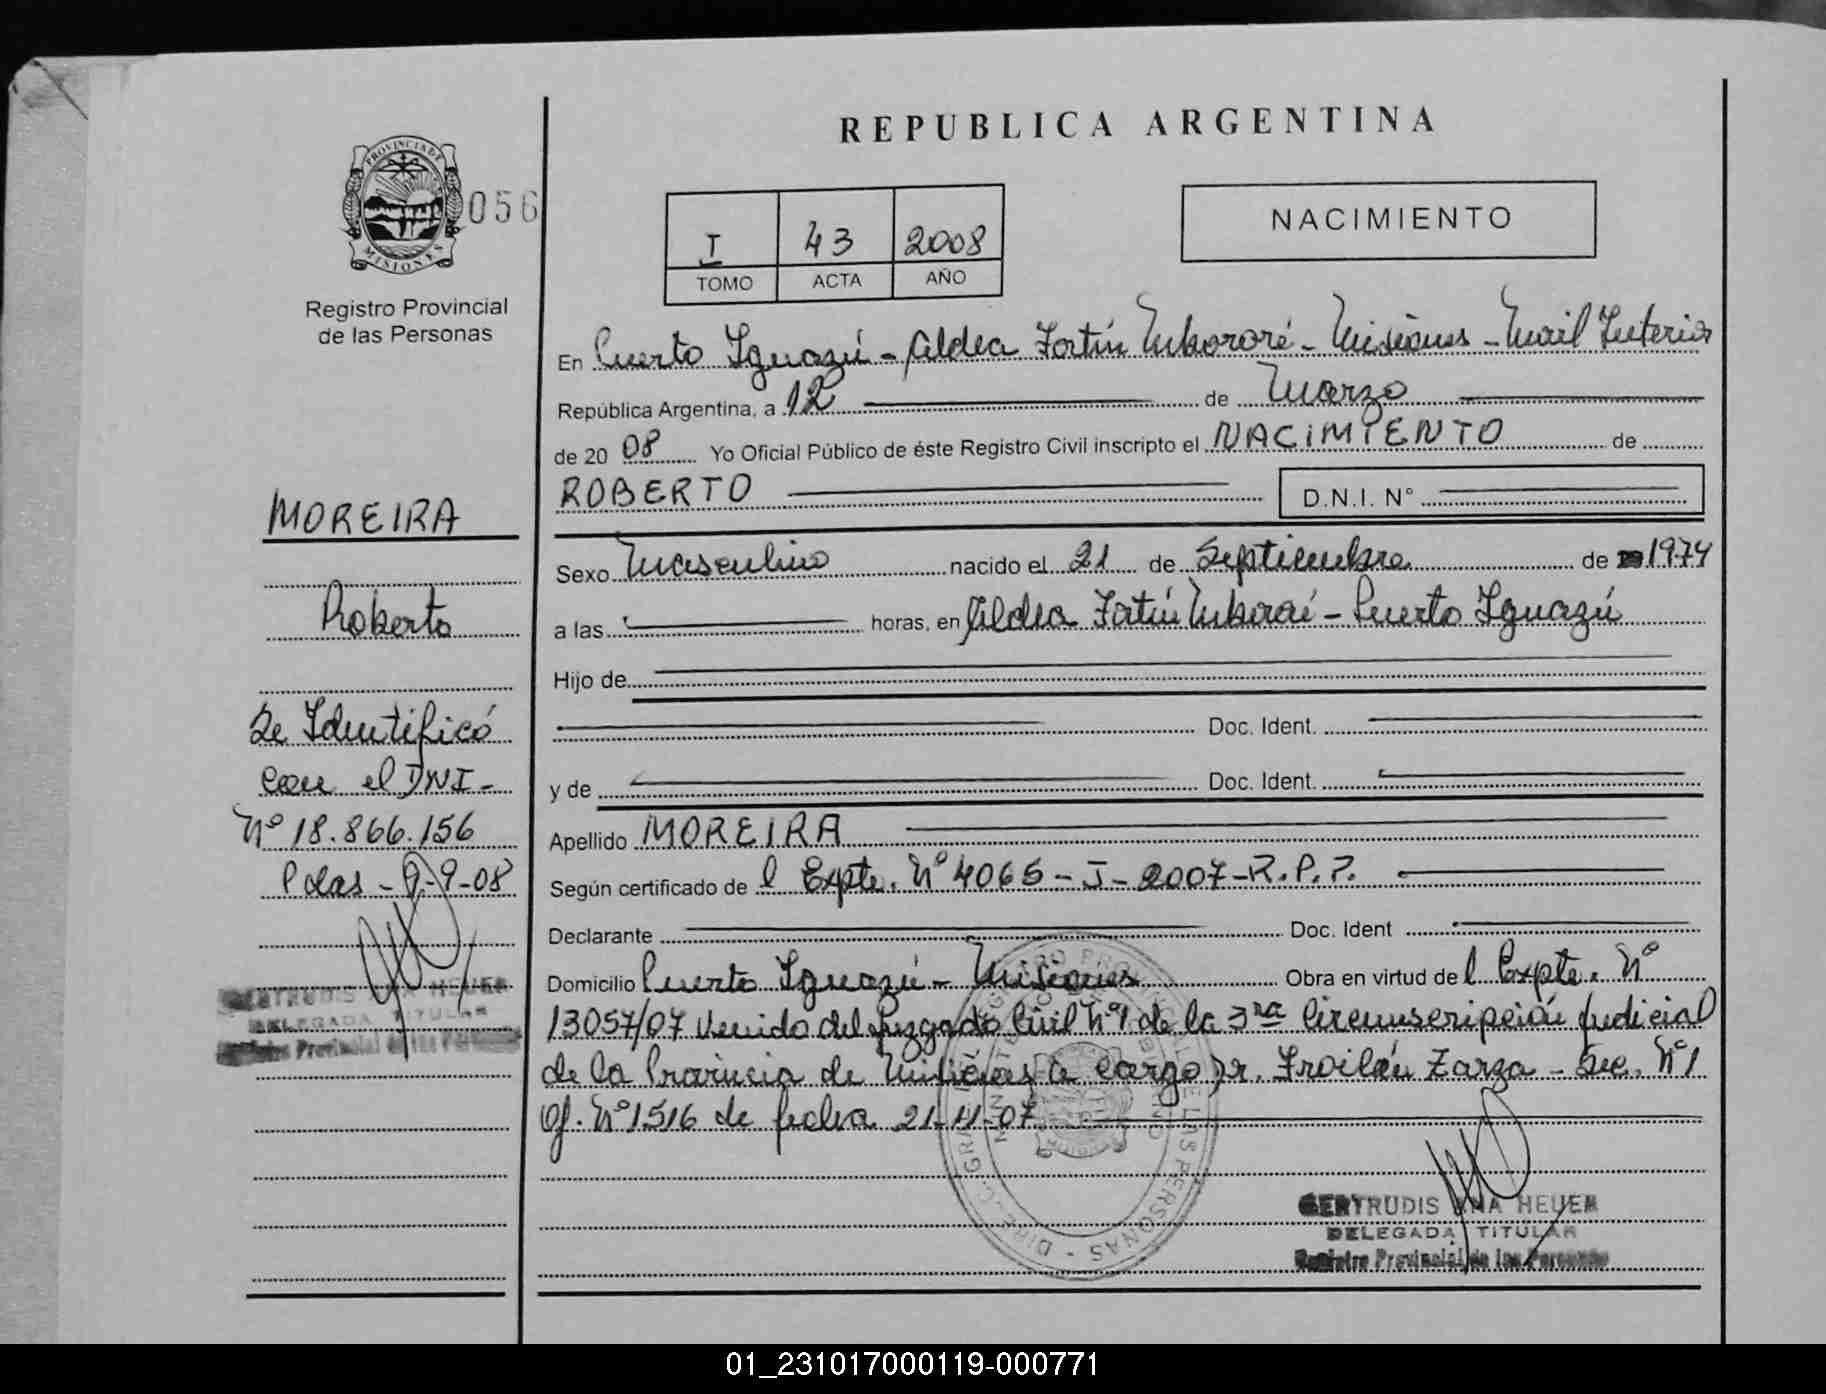 REPUBLICA ARGENTINA
PROVINCIA DE
MISIONES
056
Registro Provincial
de las Personas
I 43 2008
TOMO ACTA AÑO
NACIMIENTO
En Puerto Iguazú - Aldea Fortín Mbororé - Misiones - Movil Interior
República Argentina, a 12 de Marzo
de 20 08 Yo Oficial Público de éste Registro Civil inscripto el NACIMIENTO de
ROBERTO D.N.I. N°
Sexo Masculino nacido el 21 de Septiembre de 1974
a las horas, en Aldea Fortín Mbororé - Puerto Iguazú
Hijo de
Doc. Ident.
y de Doc. Ident.
Apellido MOREIRA
Según certificado de l Expte. N° 4065 - J - 2007 - R.P.P.
Declarante Doc. Ident
Domicilio Puerto Iguazú - Misiones Obra en virtud de l Expte. N°
13057/07 venido del Juzgado Civil N°1 de la 3ra Circunscripción Judicial
de la Provincia de Misiones a cargo Dr. Froilán Zarza - Sec. N°1
Of. N°1516 de fecha 21-11-07
GERTRUDIS ANA HEUER
DELEGADA TITULAR
Registro Provincial de las Personas
MOREIRA
Roberto
Se Identificó
con el DNI -
N° 18.866.156
Pdas - 9-9-08
GERTRUDIS ANA HEUER
DELEGADA TITULAR
Registro Provincial de las Personas
01_231017000119-000771